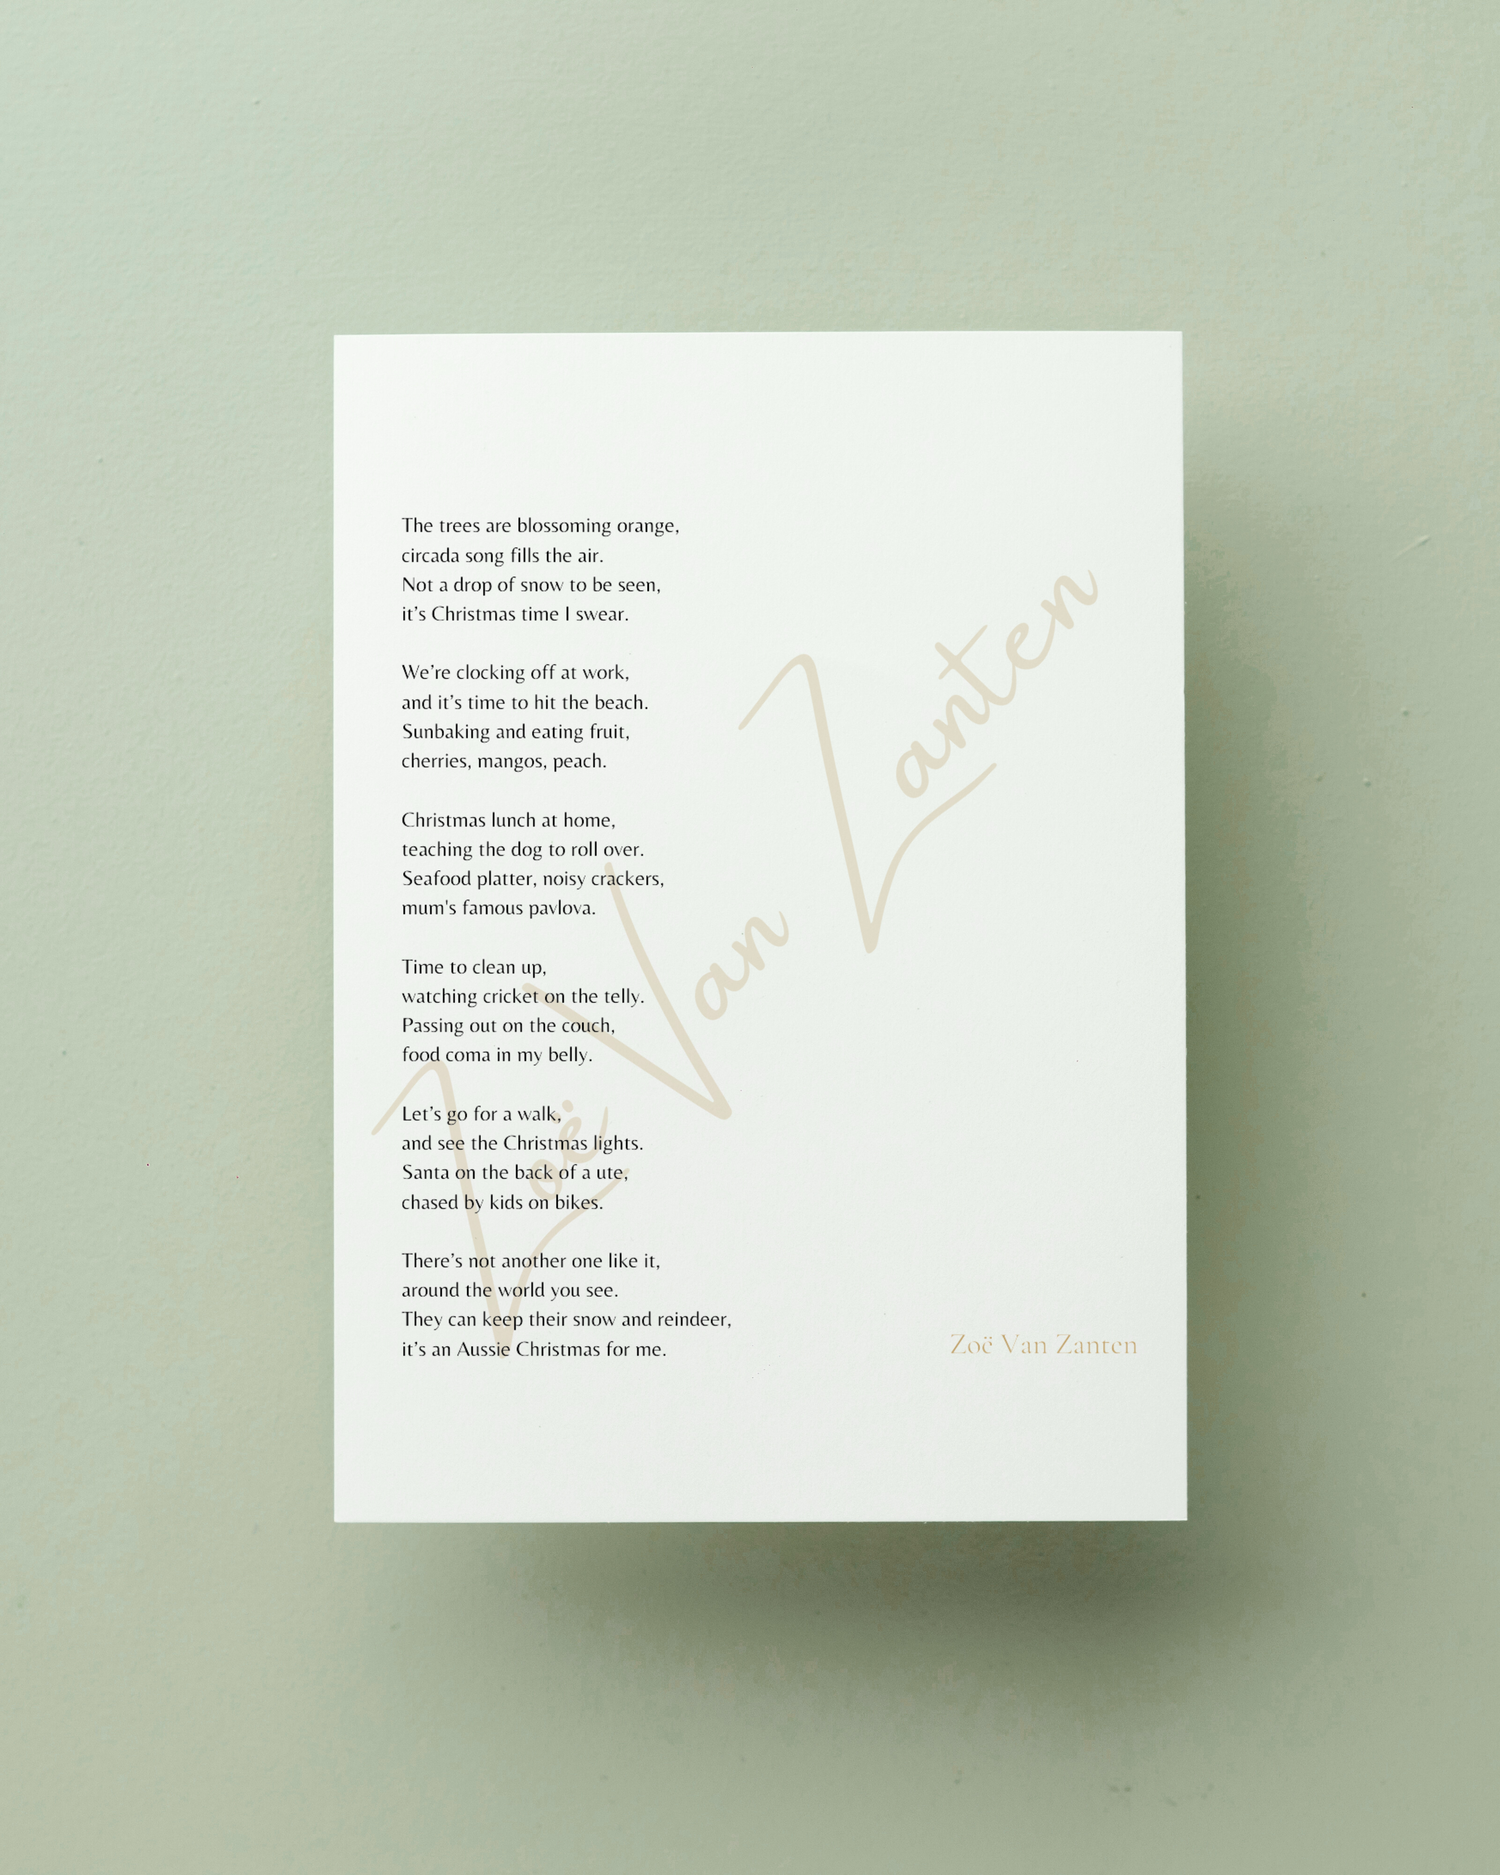 The trees are blossoming orange,
circada song fills the air.
Not a drop of snow to be seen,
it’s Christmas time I swear.

We’re clocking off at work,
and it’s time to hit the beach.
Sunbaking and eating fruit,
cherries, mangos, peach.

Christmas lunch at home,
teaching the dog to roll over.
Seafood platter, noisy crackers,
mum's famous pavlova.

Time to clean up,
watching cricket on the telly.
Passing out on the couch,
food coma in my belly.

Let’s go for a walk,
and see the Christmas lights.
Santa on the back of a ute,
chased by kids on bikes.

There’s not another one like it,
around the world you see.
They can keep their snow and reindeer,
it’s an Aussie Christmas for me.

Zoë Van Zanten
Zoë Van Zanten